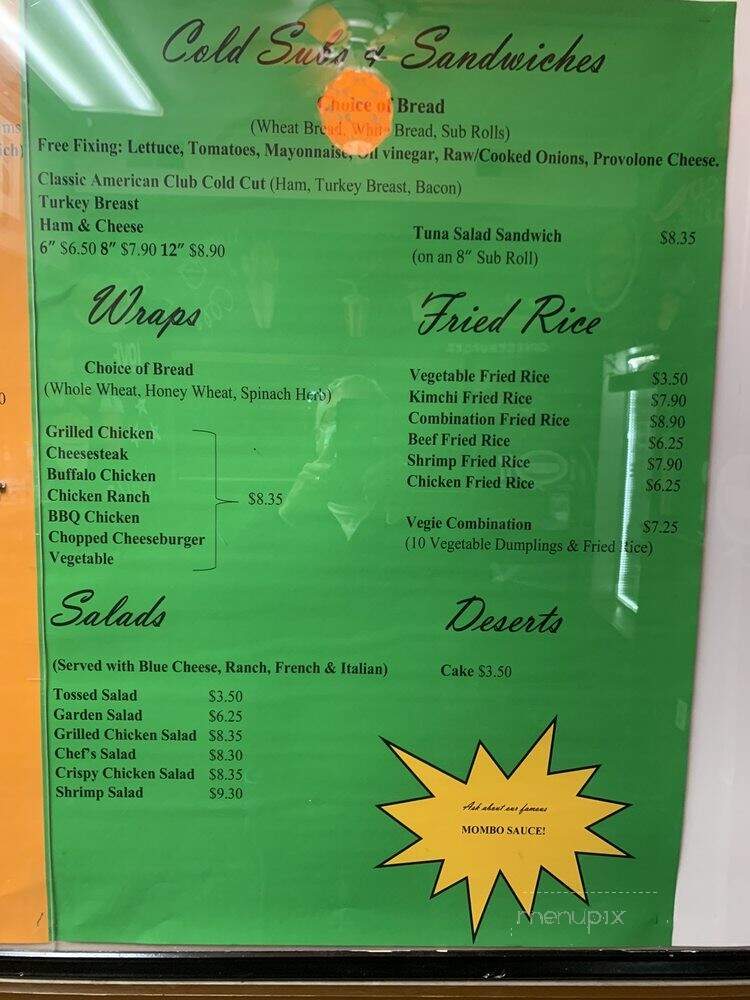 Cold Subs & Sandwiches
Choice of Bread
(Wheat Bread, White Bread, Sub Rolls)
Free Fixing: Lettuce, Tomatoes, Mayonnaise, Oil vinegar, Raw/Cooked Onions, Provolone Cheese.
Classic American Club Cold Cut (Ham, Turkey Breast, Bacon)
Turkey Breast
Ham & Cheese
6" $6.50 8" $7.90 12" $8.90
Tuna Salad Sandwich $8.35
(on an 8" Sub Roll)
Wraps
Choice of Bread
(Whole Wheat, Honey Wheat, Spinach Herb)
Grilled Chicken
Cheesesteak
Buffalo Chicken
Chicken Ranch $8.35
BBQ Chicken
Chopped Cheeseburger
Vegetable
Fried Rice
Vegetable Fried Rice $3.50
Kimchi Fried Rice $7.90
Combination Fried Rice $8.90
Beef Fried Rice $6.25
Shrimp Fried Rice $7.90
Chicken Fried Rice $6.25
Vegie Combination $7.25
(10 Vegetable Dumplings & Fried Rice)
Salads
(Served with Blue Cheese, Ranch, French & Italian)
Tossed Salad $3.50
Garden Salad $6.25
Grilled Chicken Salad $8.35
Chef's Salad $8.30
Crispy Chicken Salad $8.35
Shrimp Salad $9.30
Deserts
Cake $3.50
Ask about our famous
MOMBO SAUCE!
menupix